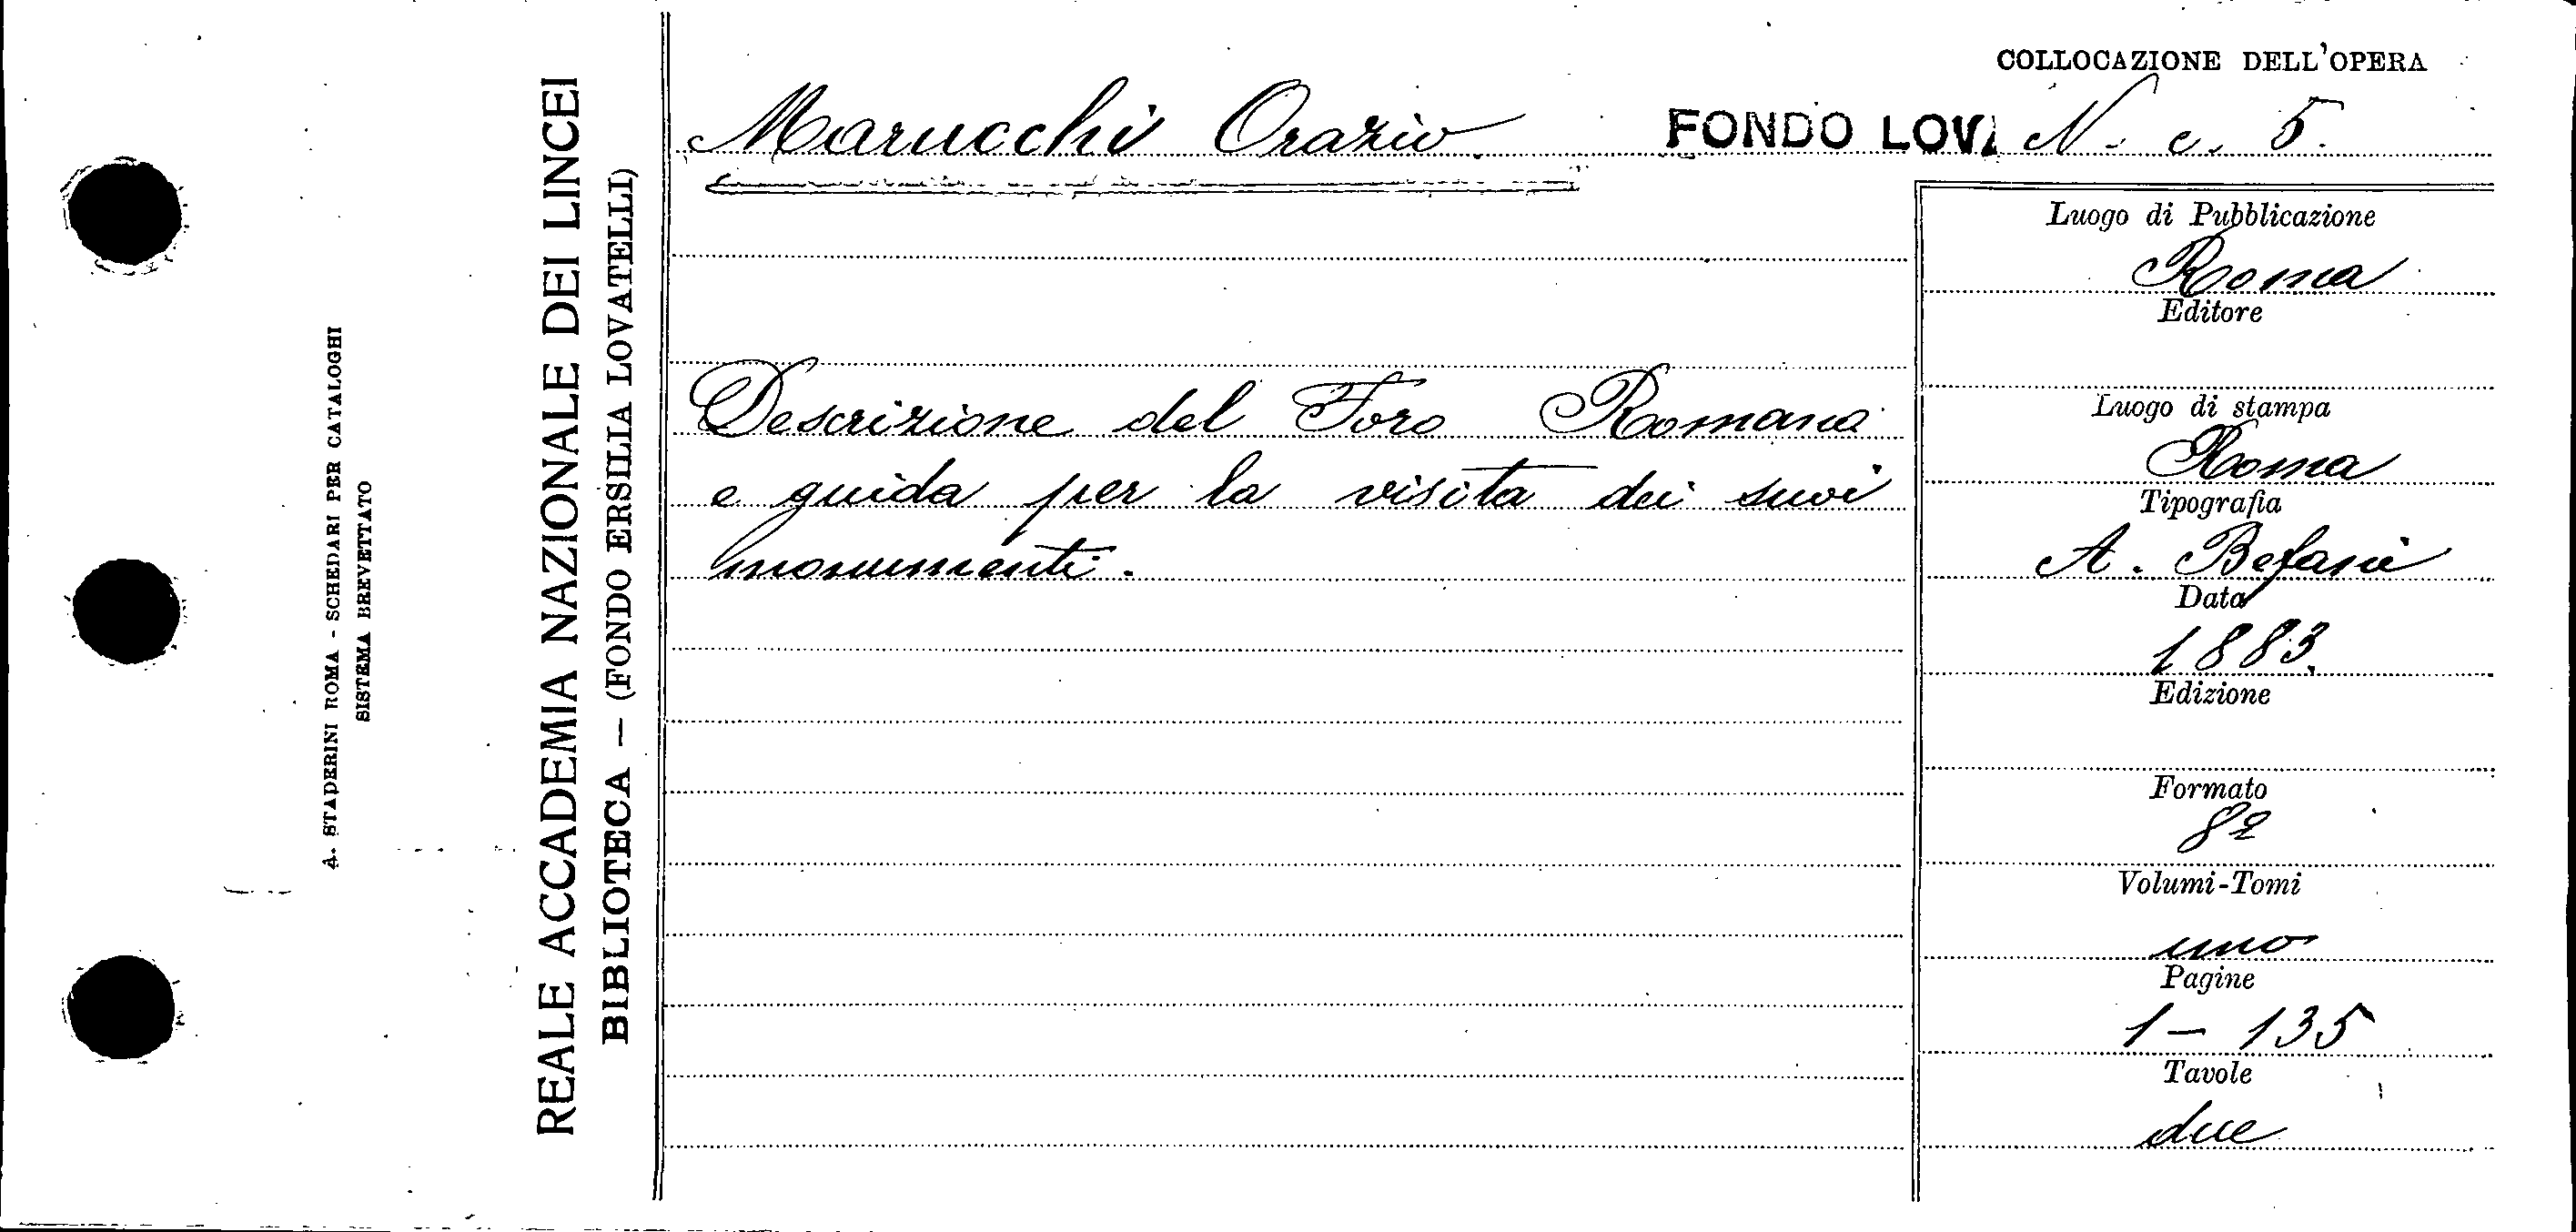 COLLOCAZIONE DELL'OPERA
Marucchi Orazio
FONDO LOV. N. c. 5.
Descrizione del Foro Romano
e guida per la visita dei suoi
monumenti.
Luogo di Pubblicazione
Roma
Editore
Luogo di stampa
Roma
Tipografia
A. Befani
Data
1883.
Edizione
Formato
8º
Volumi-Tomi
uno
Pagine
1 - 135
Tavole
due
REALE ACCADEMIA NAZIONALE DEI LINCEI
BIBLIOTECA — (FONDO ERSILIA LOVATELLI)
A. STADERINI ROMA - SCHEDARI PER CATALOGHI
SISTEMA BREVETTATO